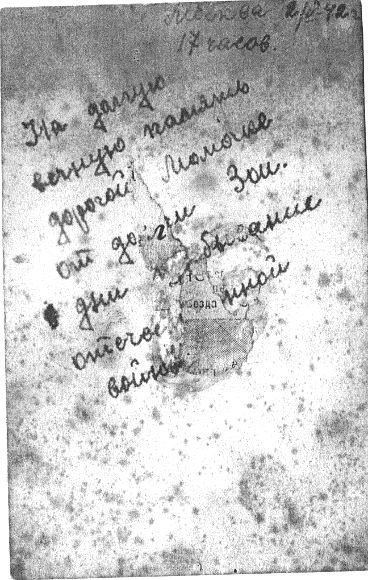 Москва 2/V-42 г
17 часов.
На долгую
вечную память
дорогой Момочке
от дочки Зои.
В дни бывание
отечественной
войной